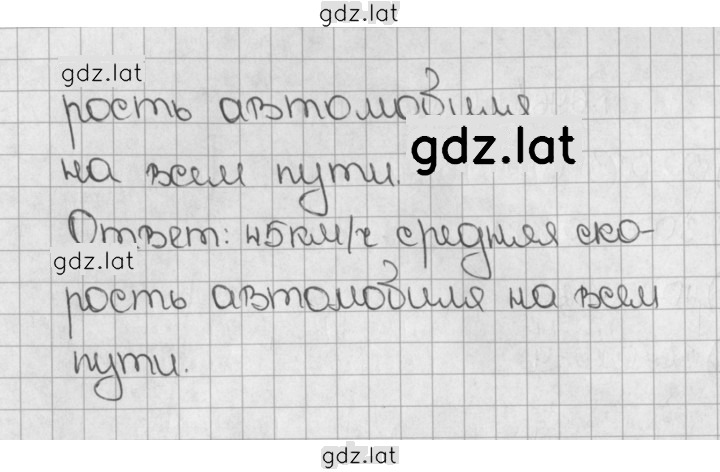 gdz.lat
gdz.lat
рость автомобиля
gdz.lat
на всем пути.
Ответ: 45км/ч средняя ско-
gdz.lat
рость автомобиля на всем
пути.
gdz.lat